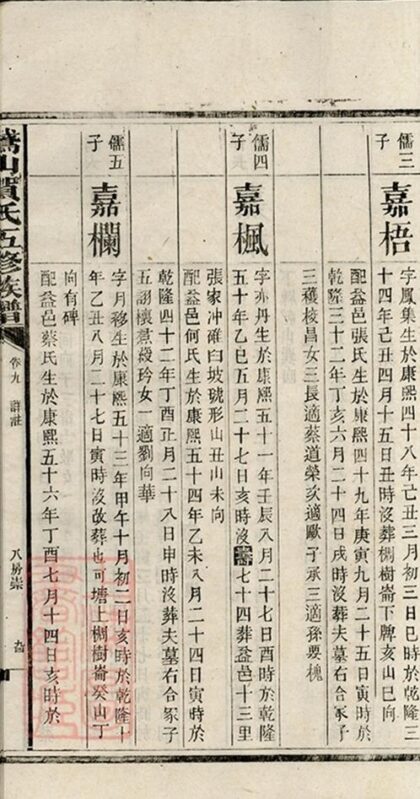 儒三
子
嘉梧
字鳳集生於康熙四十八年己丑三月初三日巳時於乾隆三
十四年己丑四月十五日丑時沒葬棡樹崙下脾亥山巳向
配益邑張氏生於康熙四十九年庚寅九月二十五日寅時於
乾隆三十二年丁亥六月二十四日戌時沒葬夫墓右合冢子
三穫梭昌女三長適蔡道榮次適歐子承三適孫要槐
儒四
子
嘉楓
字亦丹生於康熙五十一年壬辰八月二十七日酉時於乾隆
五十年乙巳五月二十七日亥時沒壽七十四葬益邑十三里
張家沖碓臼坡號形山丑山未向
配益邑何氏生於康熙五十四年乙未八月二十四日寅時於
乾隆四十二年丁酉正月二十八日申時沒葬夫墓右合冢子
五詡懷煮毅玲女一適劉向華
儒五
子
嘉欄
字月移生於康熙五十三年甲午十月初二日亥時於乾隆十
年乙丑八月二十七日寅時沒改葬也可塘上棡樹崙癸山丁
向有碑
配益邑蔡氏生於康熙五十六年丁酉七月十四日亥時於
山賀氏五修族譜
卷九
詳註
八房崇